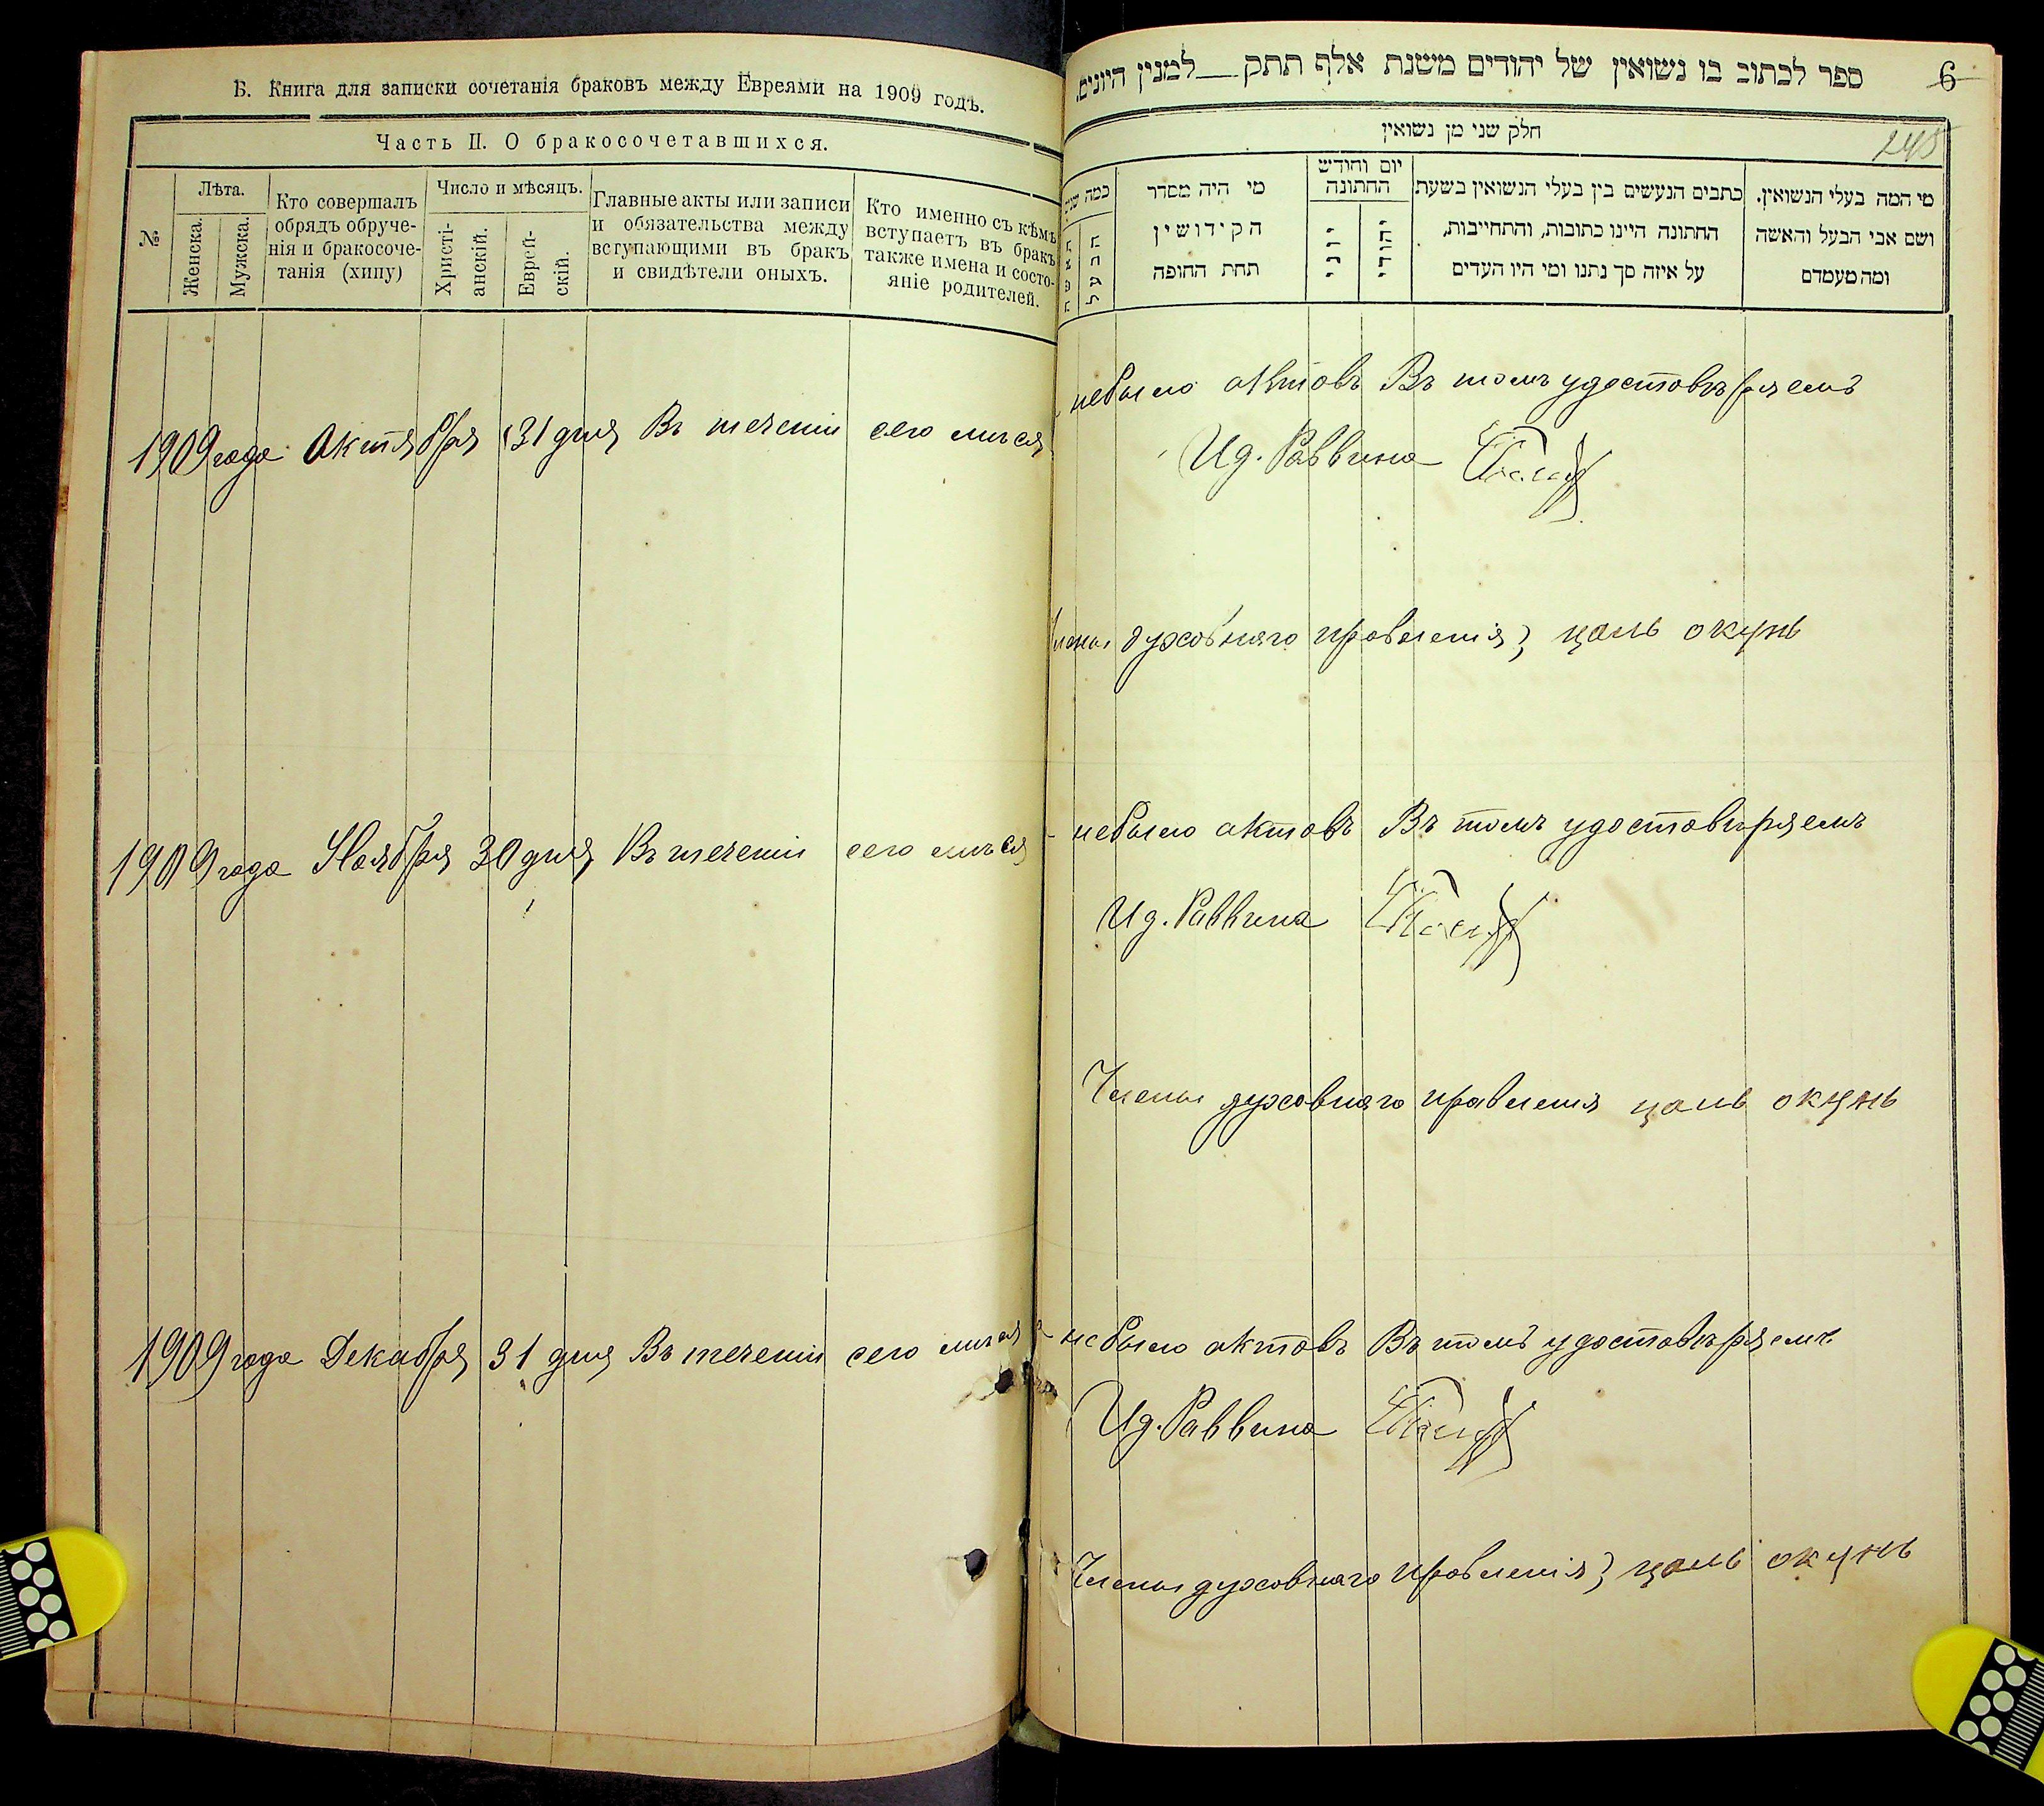 Б. Книга для записки сочетанія браковъ между Евреями на 1909 годъ.
Часть II. О бракосочетавшихся.
№
Лѣта.
Женска.
Мужска.
Кто совершалъ
обрядъ обруче-
нія и бракосоче-
танія (хипу)
Число и мѣсяцъ.
Христі-
анскій.
Еврей-
скій.
Главные акты или записи
и обязательства между
вступающими въ бракъ
и свидѣтели оныхъ.
Кто именно съ кѣмъ
вступаетъ въ бракъ
также имена и состо-
яніе родителей.
1909 года Октября 31 дня Въ теченіи сего мѣся
1909 года Ноября 30 дня Въ теченіи сего мѣся
1909 года Декабря 31 дня Въ теченіи сего мѣся
ספר לכתוב בו נשואין של יהודים משנת אלף תתק למנין היונים.
6
חלק שני מן נשואין
245
מי המה בעלי הנשואין.
ושם אבי הבעל והאשה
ומה מעמדם
כתבים הנעשים בין בעלי הנשואין בשעת
החתונה היינו כתובות, והתחייבות,
על איזה סך נתנו ומי היו העדים
יום וחודש
החתונה
יהודי
יוני
מי היה מסדר
הקידושין
תחת החופה
כמה
הבעל
האשה
небыло актовъ Въ томъ удостовѣряемъ
Ид. Раввина
Члены духовнаго правленія цаль окунь
небыло актовъ Въ томъ удостовѣряемъ
Ид. Раввина
Члены духовнаго правленія цаль окунь
небыло актовъ Въ томъ удостовѣряемъ
Ид. Раввина
Члены духовнаго правленія цаль окунь